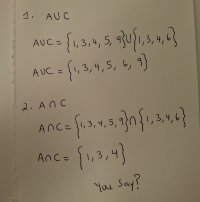 1. A∪C
A∪C = {1,3,4,5,9}∪{1,3,4,6}
A∪C = {1,3,4,5,6,9}
2. A∩C
A∩C = {1,3,4,5,9}∩{1,3,4,6}
A∩C = {1,3,4}
You Say?